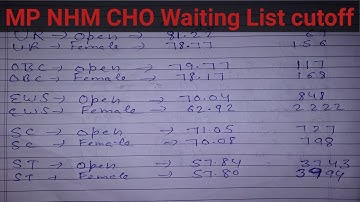 MP NHM CHO Waiting List cutoff
UR → Open → 81.22 67
UR → Female → 78.77 156
OBC → open → 79.77 117
OBC → Female → 78.17 168
EWS → open → 70.04 848
EWS → Female → 62.92 2222
SC → Open → 71.05 727
SC → Female → 70.08 798
ST → Open → 57.84 3743
ST → Female → 57.80 3994